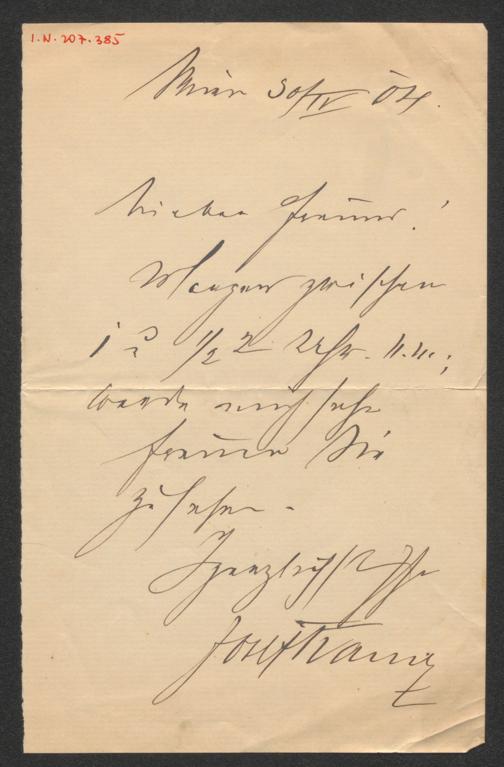 I.N. 207.385
Wien 30/IV 04.
Lieber Freund!
Morgen zwischen
1/2 2 Uhr. N.M.;
werde mich sehr
freuen Sie
zu sehen -
Herzlichst Ihr
Josef Kainz